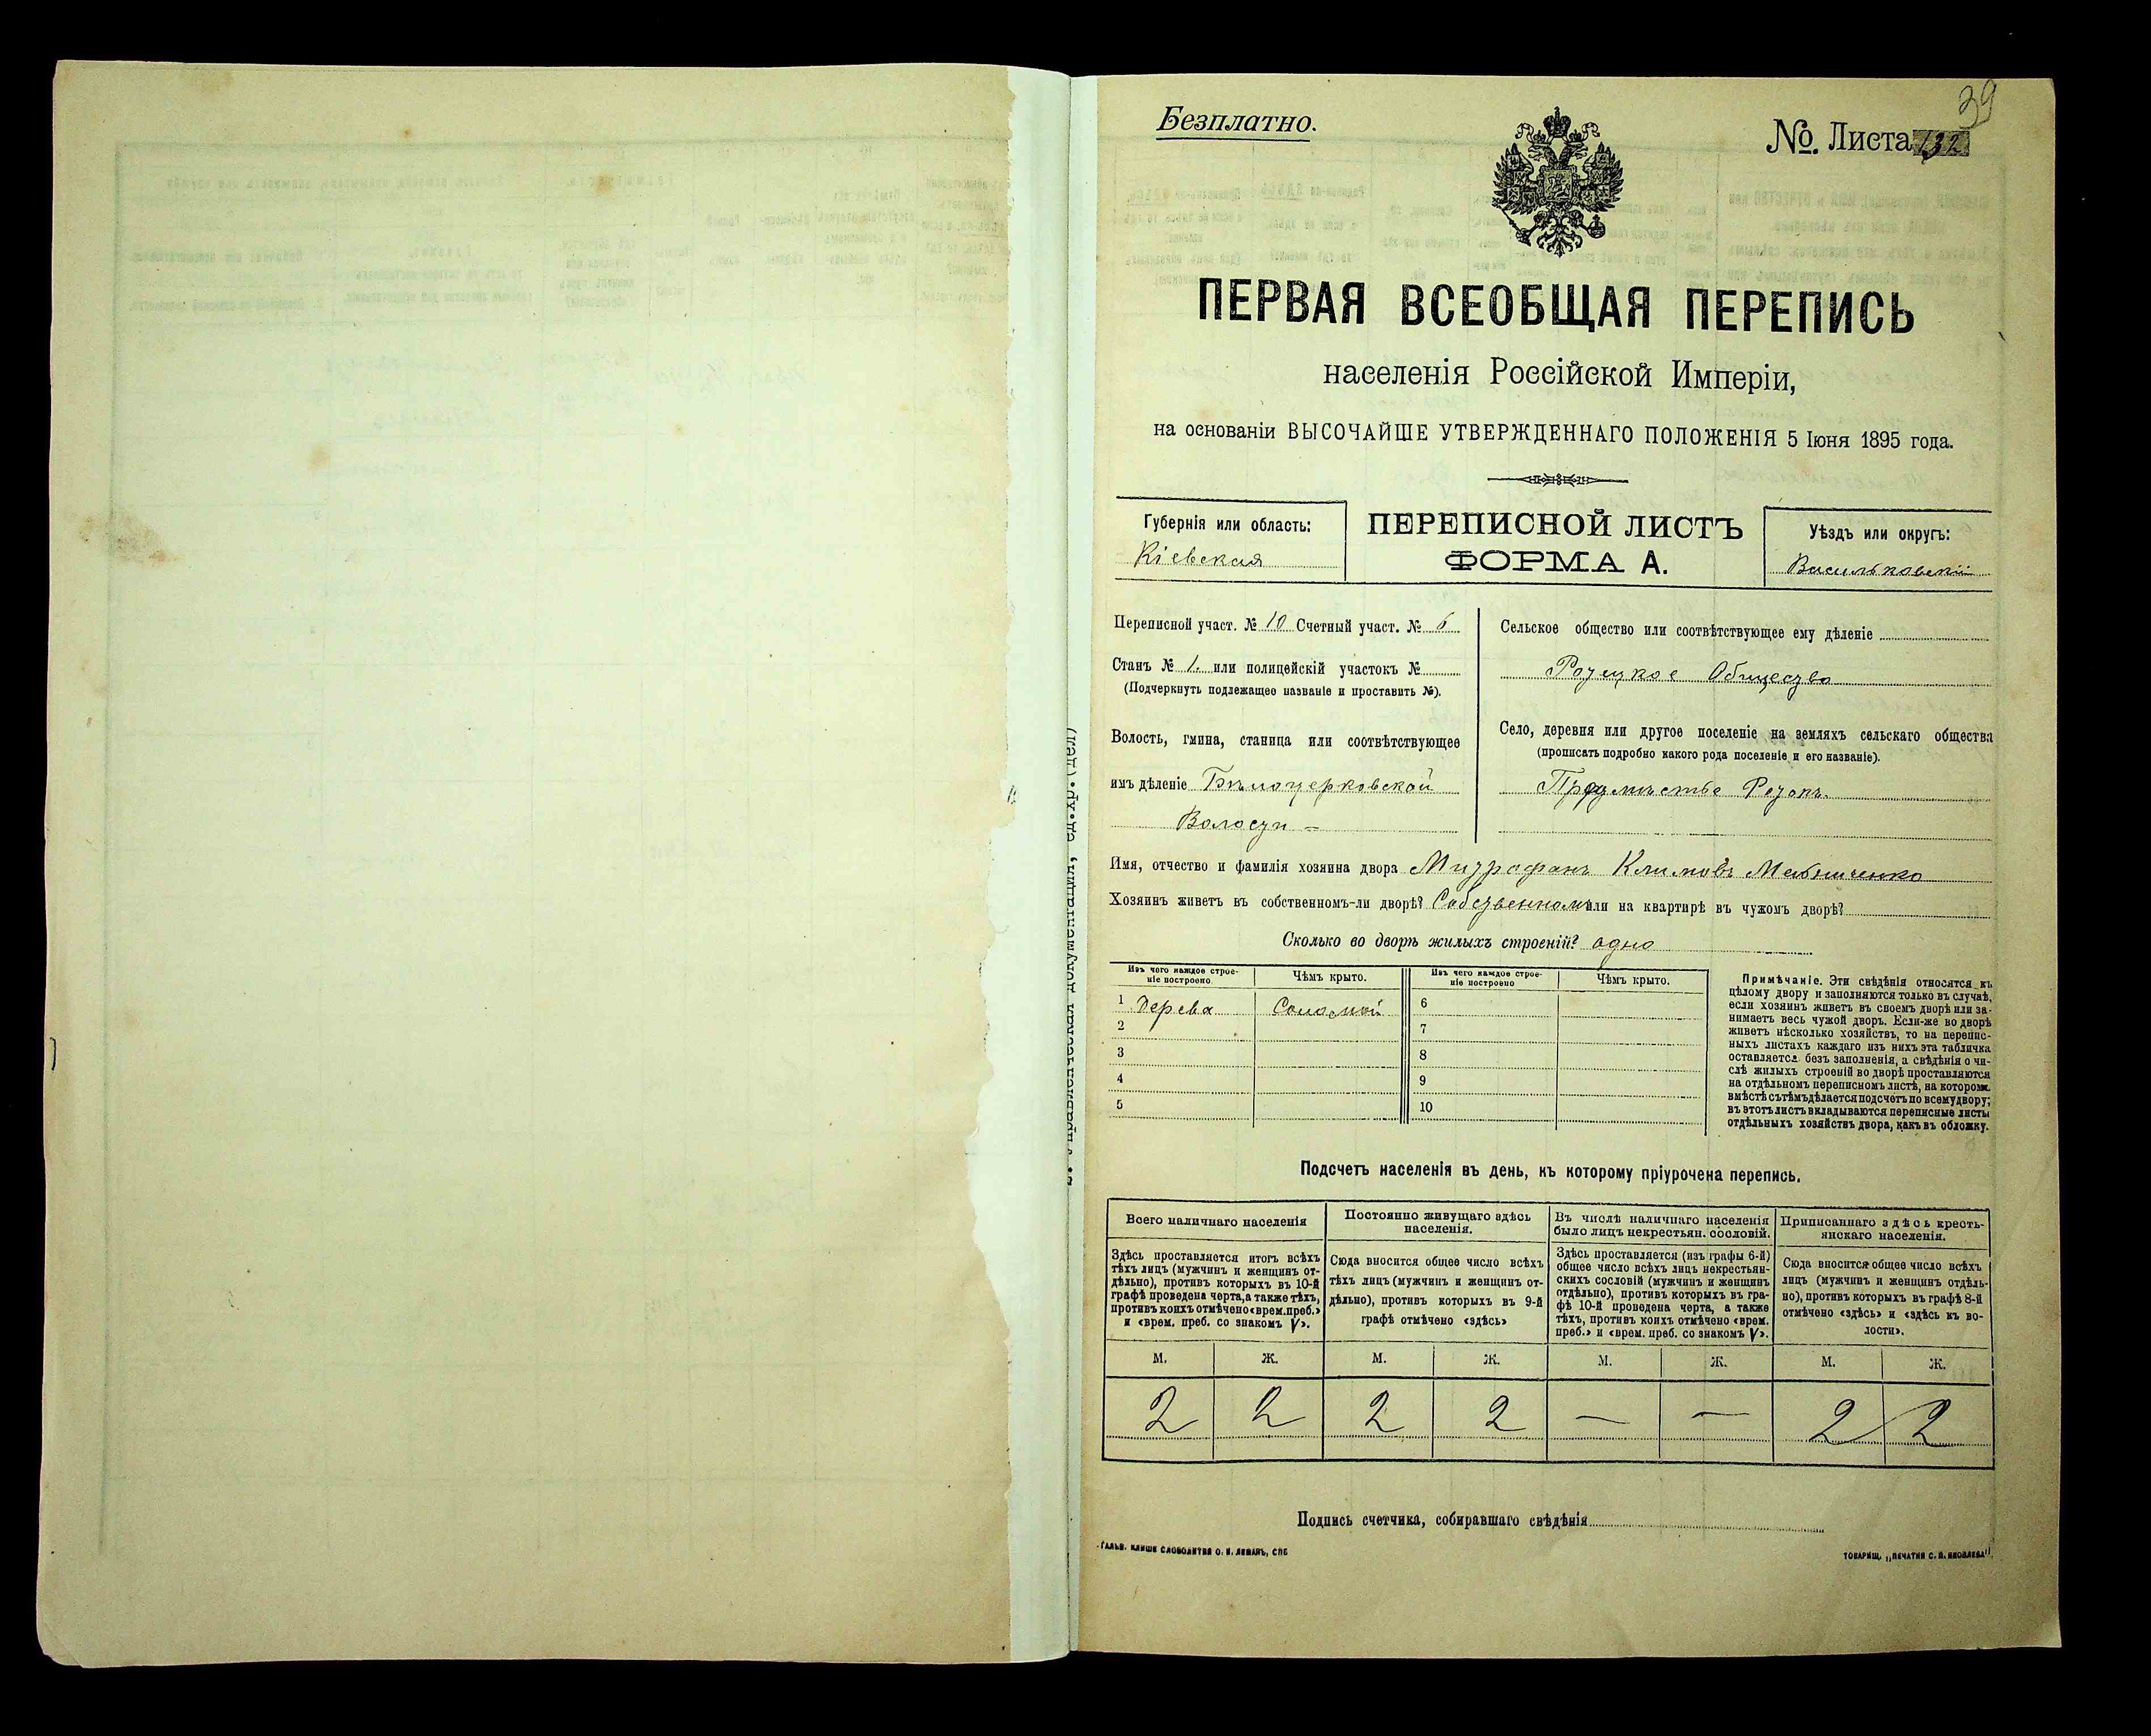 39
Безплатно.
№. Листа 132
ПЕРВАЯ ВСЕОБЩАЯ ПЕРЕПИСЬ
населенія Россійской Имперіи,
на основаніи ВЫСОЧАЙШЕ УТВЕРЖДЕННАГО ПОЛОЖЕНІЯ 5 Іюня 1895 года.
Губернія или область:
Кіевская
ПЕРЕПИСНОЙ ЛИСТЪ
ФОРМА А.
Уѣздъ или округъ:
Васильковскій
Переписной участ. № 10 Счетный участ. № 6
Станъ № 1. или полицейскій участокъ №
(Подчеркнуть подлежащее названіе и проставить №).
Волость, гмина, станица или соотвѣтствующее
имъ дѣленіе Бѣлоцерковской
Волости
Сельское общество или соотвѣтствующее ему дѣленіе
Роткое Общество
Село, деревня или другое поселеніе на земляхъ сельскаго общества
(прописать подробно какого рода поселеніе и его названіе).
Предмѣстье Ротокъ.
Имя, отчество и фамилія хозяина двора Митрофанъ Климовъ Мельниченко
Хозяинъ живетъ въ собственномъ-ли дворѣ? Собственномъ или на квартирѣ въ чужомъ дворѣ?
Сколько во дворѣ жилыхъ строеній? одно
Изъ чего каждое строе-
ніе построено
Чѣмъ крыто.
Изъ чего каждое строе-
ніе построено
Чѣмъ крыто.
1 Дерева Соломой 6
2 7
3 8
4 9
5 10
Примѣчаніе. Эти свѣдѣнія относятся къ
цѣлому двору и заполняются только въ случаѣ,
если хозяинъ живетъ въ своемъ дворѣ или за-
нимаетъ весь чужой дворъ. Если-же во дворѣ
живетъ нѣсколько хозяйствъ, то на перепис-
ныхъ листахъ каждаго изъ нихъ эта табличка
оставляется безъ заполненія, а свѣдѣнія о чи-
слѣ жилыхъ строеній во дворѣ проставляются
на отдѣльномъ переписномъ листѣ, на которомъ
вмѣстѣ съ тѣмъ дѣлается подсчетъ по всему двору;
въ этотъ листъ вкладываются переписные листы
отдѣльныхъ хозяйствъ двора, какъ въ обложку.
Подсчетъ населенія въ день, къ которому пріурочена перепись.
Всего наличнаго населенія
Здѣсь проставляется итогъ всѣхъ
тѣхъ лицъ (мужчинъ и женщинъ от-
дѣльно), противъ которыхъ въ 10-й
графѣ проведена черта, а также тѣхъ,
противъ коихъ отмѣчено «врем. преб.»
и «врем. преб. со знакомъ V».
Постоянно живущаго здѣсь
населенія.
Сюда вносится общее число всѣхъ
тѣхъ лицъ (мужчинъ и женщинъ от-
дѣльно), противъ которыхъ въ 9-й
графѣ отмѣчено «здѣсь»
Въ числѣ наличнаго населенія
было лицъ некрестьян. сословій.
Здѣсь проставляется (изъ графы 6-й)
общее число всѣхъ лицъ некрестьян-
скихъ сословій (мужчинъ и женщинъ
отдѣльно), противъ которыхъ въ гра-
фѣ 10-й проведена черта, а также
тѣхъ, противъ коихъ отмѣчено «врем.
преб.» и «врем. преб. со знакомъ V».
Приписаннаго здѣсь кресть-
янскаго населенія.
Сюда вносится общее число всѣхъ
лицъ (мужчинъ и женщинъ отдѣль-
но), противъ которыхъ въ графѣ 8-й
отмѣчено «здѣсь» и «здѣсь къ во-
лости».
М. Ж. М. Ж. М. Ж. М. Ж.
2 2 2 2 — — 2 2
Подпись счетчика, собиравшаго свѣдѣнія
ГАЛЬВ. КЛИШЕ СЛОВОЛИТНИ О. И. ЛЕМАНЪ, СПБ
ТОВАРИЩ. „ПЕЧАТНЯ С. П. ЯКОВЛЕВА"